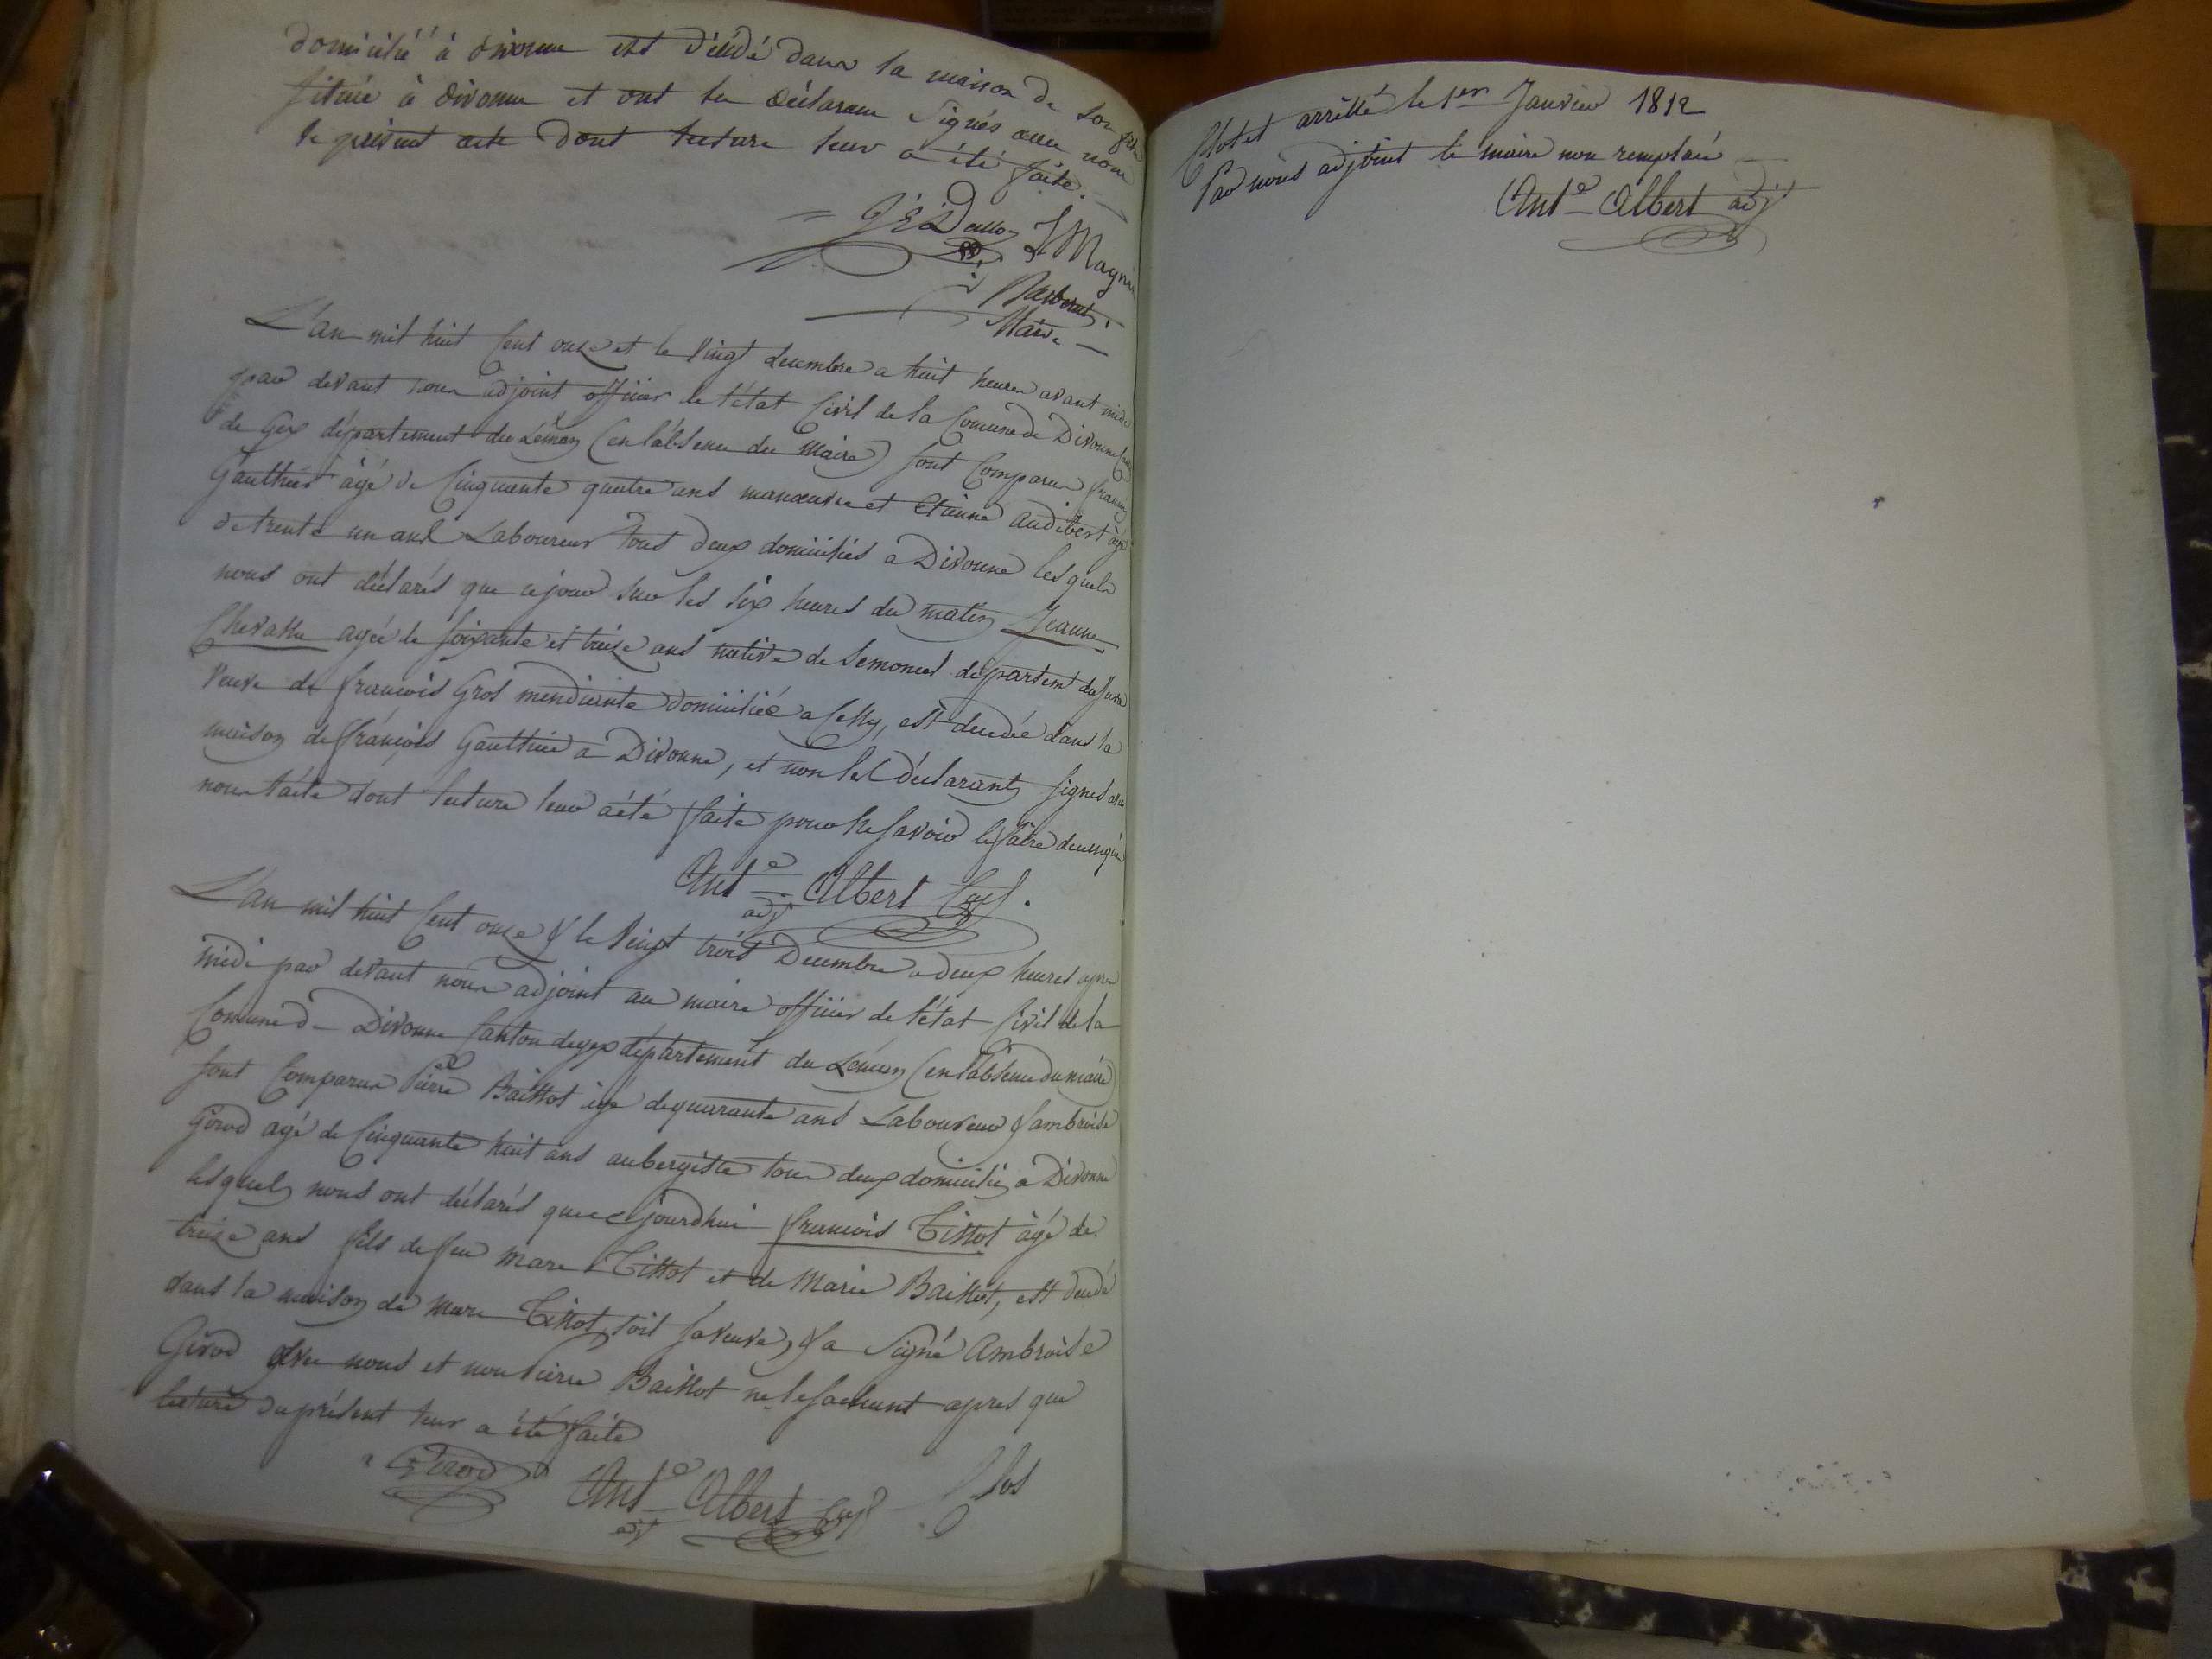 domicilié à divonne est décédé dans la maison de son père
située à divonne et ont les déclarans signés avec nous
le présent acte dont lecture leur a été faite.
J Magnin
Maire
L'an mil huit Cent onze et le Vingt decembre a huit heures avant midi
par devant nous adjoint officier de l'état Civil de la Comune de Divonne
de Gex département du Léman (en l'absence du Maire) sont Comparus françois
Gauthier âgé de Cinquante quatre ans manœuvre et Etienne audibert âgé
de trente un ans Laboureur tous deux domiciliés a Divonne lesquels
nous ont déclarés que ce jour sur les six heures du matin Jeanne
agée de soixante et treize ans native de Semoncel départemt du Jura
Veuve de francois Gros mendiante domiciliée a Cessy, est decedée dans la
maison de françois Gauthier a Divonne, et non les déclarants signés avec
nous l'acte dont lecture leur a été faite pour ne savoir le faire de ce enquis
Ante Albert
adj
L'an mil huit Cent onze & le Vingt trois Decembre a deux heures apres
midi par devant nous adjoint au maire officier de l'état Civil de la
Comune de Divonne Canton de gex département du Léman (en l'absence du maire)
sont Comparus Pierre Baissot agé de quarante ans Laboureur & ambroise
Girod agé de Cinquante huit ans aubergiste tous deux domiciliés a Divonne
lesquels nous ont déclarés que cejourdhui francois Tissot âgé de
treize ans fils de feu marc Tissot et de Marie Baissot, est decedé
dans la maison de marc Tissot, soit sa veuve, & a Signé Ambroise
Girod avec nous et non Pierre Baissot ne le sachant apres que
lecture du présent leur a été faite
Girod Ante Albert Clos
adj
Clos et arrêtté le 1er Janvier 1812
Par nous adjoint le maire non remplacé
Ante Albert adj